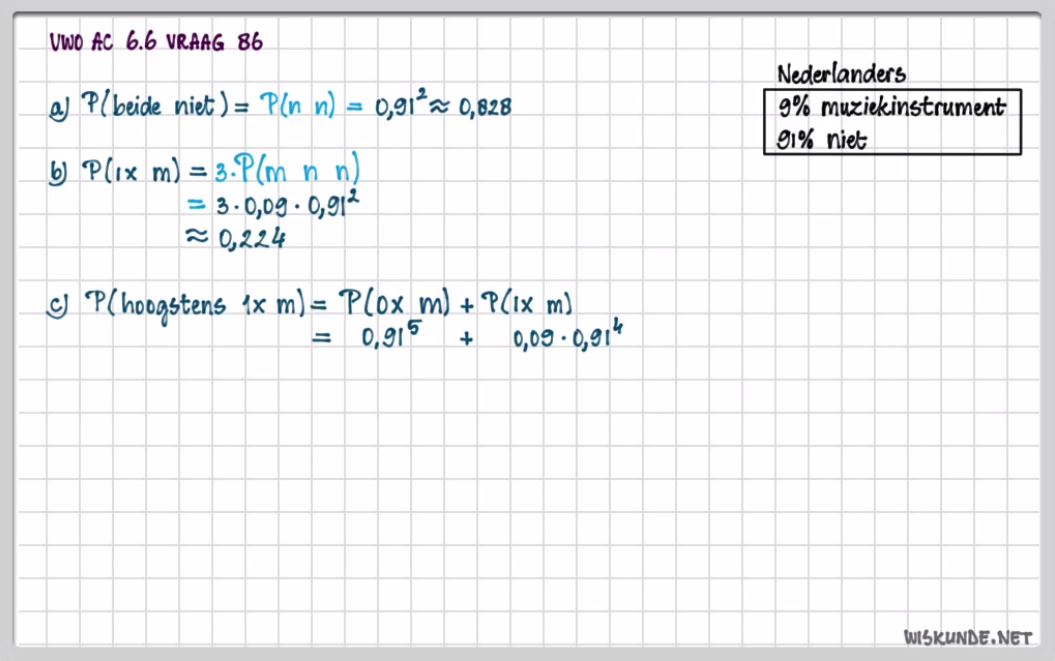 VWO AC 6.6 VRAAG 86
Nederlanders
9% muziekinstrument
91% niet
a) P(beide niet) = P(n n) = 0,91² ≈ 0,828
b) P(1x m) = 3·P(m n n)
= 3·0,09·0,91²
≈ 0,224
c) P(hoogstens 1x m) = P(0x m) + P(1x m)
= 0,91⁵ + 0,09·0,91⁴
WISKUNDE.NET